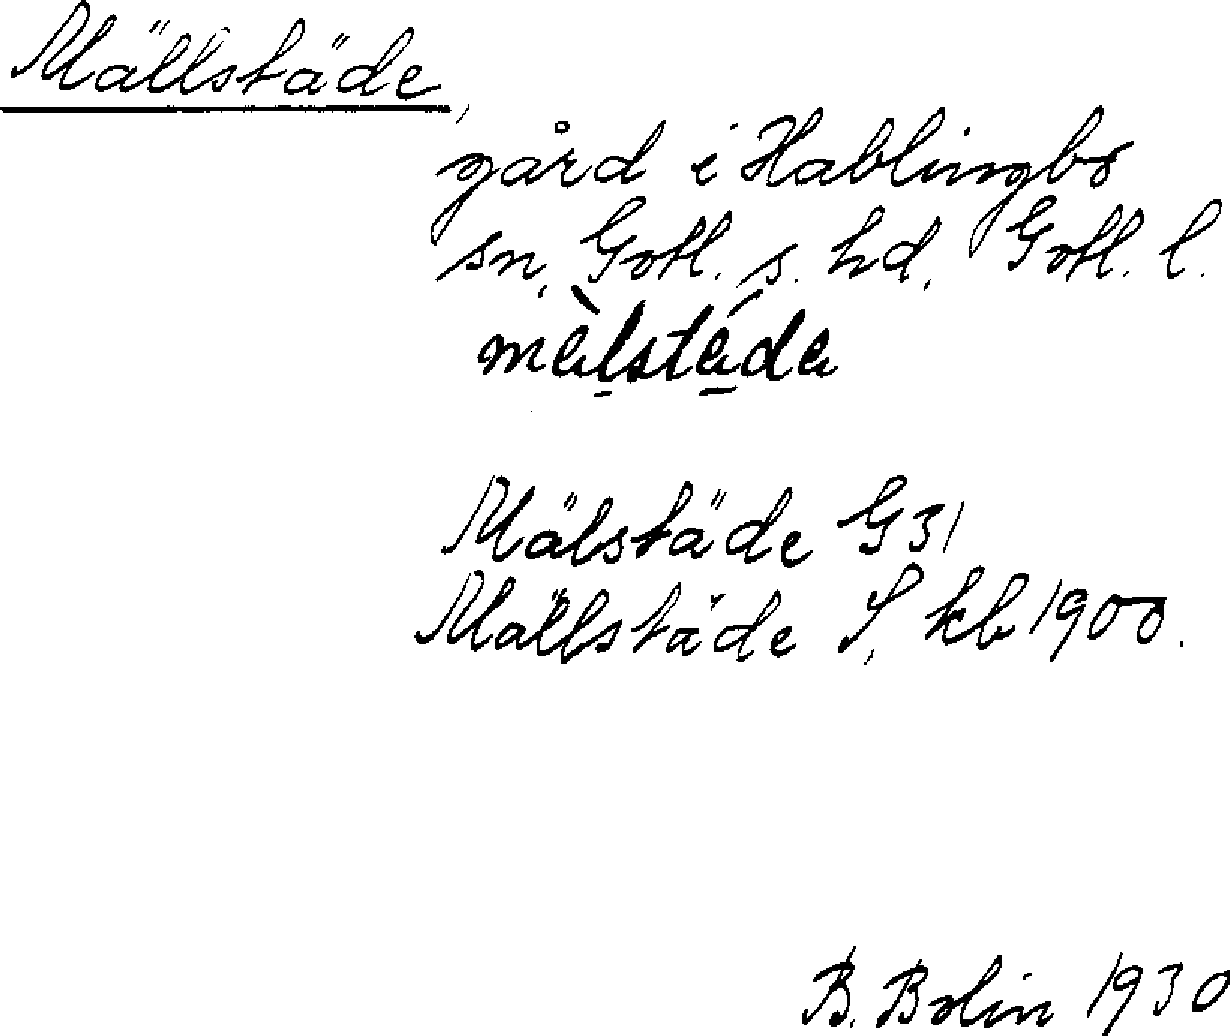 Mällstäde,
gård i Hablingbo
sn, Gotl. s. hd, Gotl. l.
Mälstäde G 31
Mällstäde S, kb 1900.
B. Bolin 1930